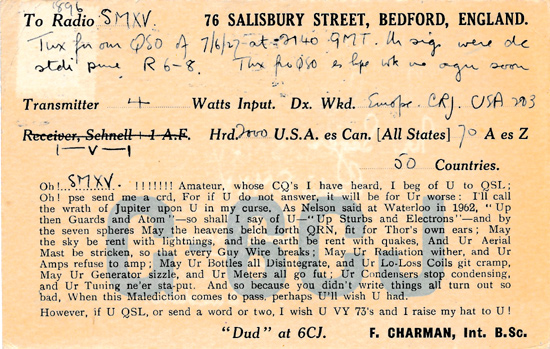 1896
To Radio SMXV. 76 SALISBURY STREET, BEDFORD, ENGLAND.
Tnx for our QSO of 7/6/27 at 2140 GMT. Ur sigs were dc
stdi pure R 6-8. Tnx fr QSO es hpe wk u agn soon
Transmitter 4 Watts Input. Dx. Wkd. Europe. CRJ. USA 2 & 3
Receiver, Schnell + 1 A.F. Hrd. 2000 U.S.A. es Can. [All States] 70 A es Z
1-V-1
50 Countries.
Oh!..SMXV. !!!!!!! Amateur, whose CQ's I have heard, I beg of U to QSL;
Oh! pse send me a crd, For if U do not answer, it will be for Ur worse: I'll call
the wrath of Jupiter upon U in my curse. As Nelson said at Waterloo in 1962, "Up
then Guards and Atom"—so shall I say of U—"Up Sturbs and Electrons"—and by
the seven spheres May the heavens belch forth QRN, fit for Thor's own ears; May
the sky be rent with lightnings, and the earth be rent with quakes, And Ur Aerial
Mast be stricken, so that every Guy Wire breaks; May Ur Radiation wither, and Ur
Amps refuse to amp; May Ur Bottles all Disintegrate, and Ur Lo-Loss Coils git cramp,
May Ur Generator sizzle, and Ur Meters all go fut; Ur Condensers stop condensing,
and Ur Tuning ne'er sta put. And so because you didn't write things all turn out so
bad, When this Malediction comes to pass, perhaps U'll wish U had.
However, if U QSL, or send a word or two, I wish U VY 73's and I raise my hat to U!
G-6CJ
"Dud" at 6CJ. F. CHARMAN, Int. B.Sc.